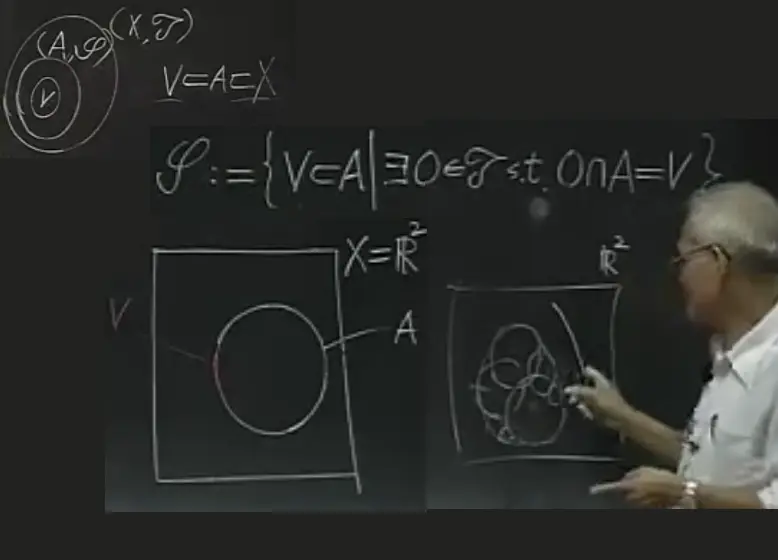 (A, 𝒮) (X, 𝒯)
V
V ⊂ A ⊂ X
𝒮 := { V ⊂ A | ∃O ∈ 𝒯 s.t. O ∩ A = V }
X = ℝ²
ℝ²
V
A